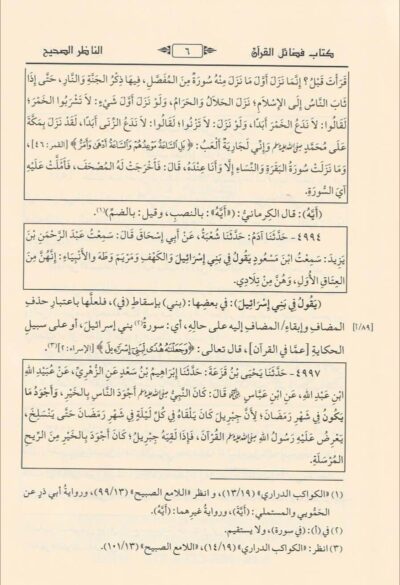 كتاب فضائل القرآن ٦ الناظر الصحيح
قَرَأْتَ قَبْلُ؟ إِنَّمَا نَزَلَ أَوَّلَ مَا نَزَلَ مِنْهُ سُورَةٌ مِنَ المُفَصَّلِ، فِيهَا ذِكْرُ الجَنَّةِ وَالنَّارِ، حَتَّى إِذَا
ثَابَ النَّاسُ إِلَى الإِسْلَامِ؛ نَزَلَ الحَلَالُ وَالحَرَامُ، وَلَوْ نَزَلَ أَوَّلَ شَيْءٍ: لَا تَشْرَبُوا الخَمْرَ؛
لَقَالُوا: لَا نَدَعُ الخَمْرَ أَبَدًا، وَلَوْ نَزَلَ: لَا تَزْنُوا؛ لَقَالُوا: لَا نَدَعُ الزِّنَى أَبَدًا، لَقَدْ نَزَلَ بِمَكَّةَ
عَلَى مُحَمَّدٍ صلى الله عليه وسلم وَإِنِّي لَجَارِيَةٌ أَلْعَبُ: ﴿بَلِ ٱلسَّاعَةُ مَوْعِدُهُمْ وَٱلسَّاعَةُ أَدْهَىٰ وَأَمَرُّ﴾ [القمر: ٤٦]،
وَمَا نَزَلَتْ سُورَةُ البَقَرَةِ وَالنِّسَاءِ إِلَّا وَأَنَا عِنْدَهُ، قَالَ: فَأَخْرَجَتْ لَهُ المُصْحَفَ، فَأَمْلَتْ عَلَيْهِ
آيَ السُّورَةِ.
(أَيَّهُ): قال الكِرمانيُّ: ((أَيَّهُ)): بالنصبِ، وقيل: بالضمِّ)(١).
٤٩٩٤- حَدَّثَنَا آدَمُ: حَدَّثَنَا شُعْبَةُ، عَنْ أَبِي إِسْحَاقَ قَالَ: سَمِعْتُ عَبْدَ الرَّحْمَنِ بْنَ
يَزِيدَ: سَمِعْتُ ابْنَ مَسْعُودٍ يَقُولُ فِي بَنِي إِسْرَائِيلَ وَالكَهْفِ وَمَرْيَمَ وَطَهَ وَالأَنْبِيَاءِ: إِنَّهُنَّ مِنَ
العِتَاقِ الأُوَلِ، وَهُنَّ مِنْ تِلَادِي.
(يَقُولُ فِي بَنِي إِسْرَائِيلَ): في بعضِها: (بني) بإسقاطِ (في)، فلعلَّها باعتبارِ حذفِ
المضافِ وإبقاءِ/ المضافِ إليه على حالِهِ، أي: سورةُ(٢) بني إسرائيلَ، أو على سبيلِ [٨٩/أ]
الحكايةِ [عمَّا في القرآن]، قال تعالى: ﴿وَجَعَلْنَـٰهُ هُدًى لِّبَنِىٓ إِسْرَٰٓءِيلَ﴾ [الإسراء: ٢](٣).
٤٩٩٧- حَدَّثَنَا يَحْيَى بْنُ قَزَعَةَ: حَدَّثَنَا إِبْرَاهِيمُ بْنُ سَعْدٍ عَنِ الزُّهْرِيِّ، عَنْ عُبَيْدِ اللهِ
ابْنِ عَبْدِ اللهِ، عَنِ ابْنِ عَبَّاسٍ قَالَ: كَانَ النَّبِيُّ صلى الله عليه وسلم أَجْوَدَ النَّاسِ بِالخَيْرِ، وَأَجْوَدُ مَا
يَكُونُ فِي شَهْرِ رَمَضَانَ؛ لِأَنَّ جِبْرِيلَ كَانَ يَلْقَاهُ فِي كُلِّ لَيْلَةٍ فِي شَهْرِ رَمَضَانَ حَتَّى يَنْسَلِخَ،
يَعْرِضُ عَلَيْهِ رَسُولُ اللهِ صلى الله عليه وسلم القُرْآنَ، فَإِذَا لَقِيَهُ جِبْرِيلُ؛ كَانَ أَجْوَدَ بِالخَيْرِ مِنَ الرِّيحِ
المُرْسَلَةِ.
(١) «الكواكب الدراري» (١٩/١٣)، و انظر «اللامع الصبيح» (٩٩/١٣)، ورواية أبي ذر عن
الحَمُّويي والمستملي: (أَيَّةُ)، ورواية غيرِهما: (أَيَّهُ).
(٢) في (أ): (في سورة)، ولا يستقيم.
(٣) انظر: «الكواكب الدراري» (١٤/١٩)، «اللامع الصبيح» (١٠١/١٣).